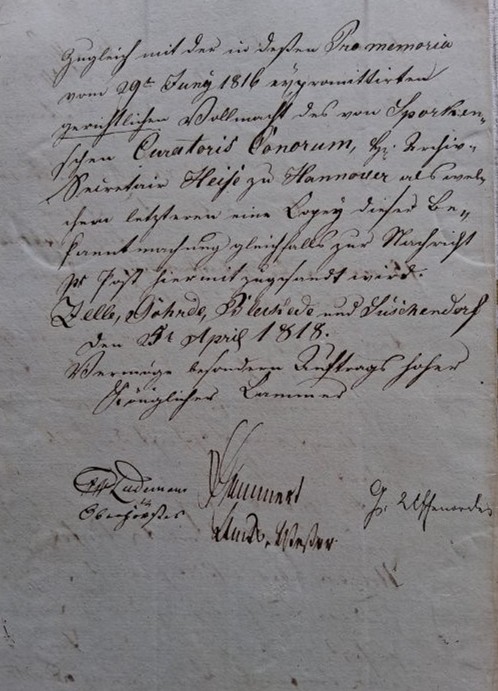 Zugleich mit der in deßen Pro memoria
vom 29t Juny 1816 expromittirten
gerichtlichen Vollmacht des von Sporken-
schen Curatoris bonorum, H. Archiv-
Secretair Heise zu Hannover als wel-
chem letzteren eine Copey dieser Be-
kanntmachung gleichfalls zur Nachricht
pr Post hiermit zugesandt wird.
Zelle, Göhrde, Bleckede und Lüschendorf
den April 1818.
Vermöge besondern Auftrags hoher
Königlicher Cammer